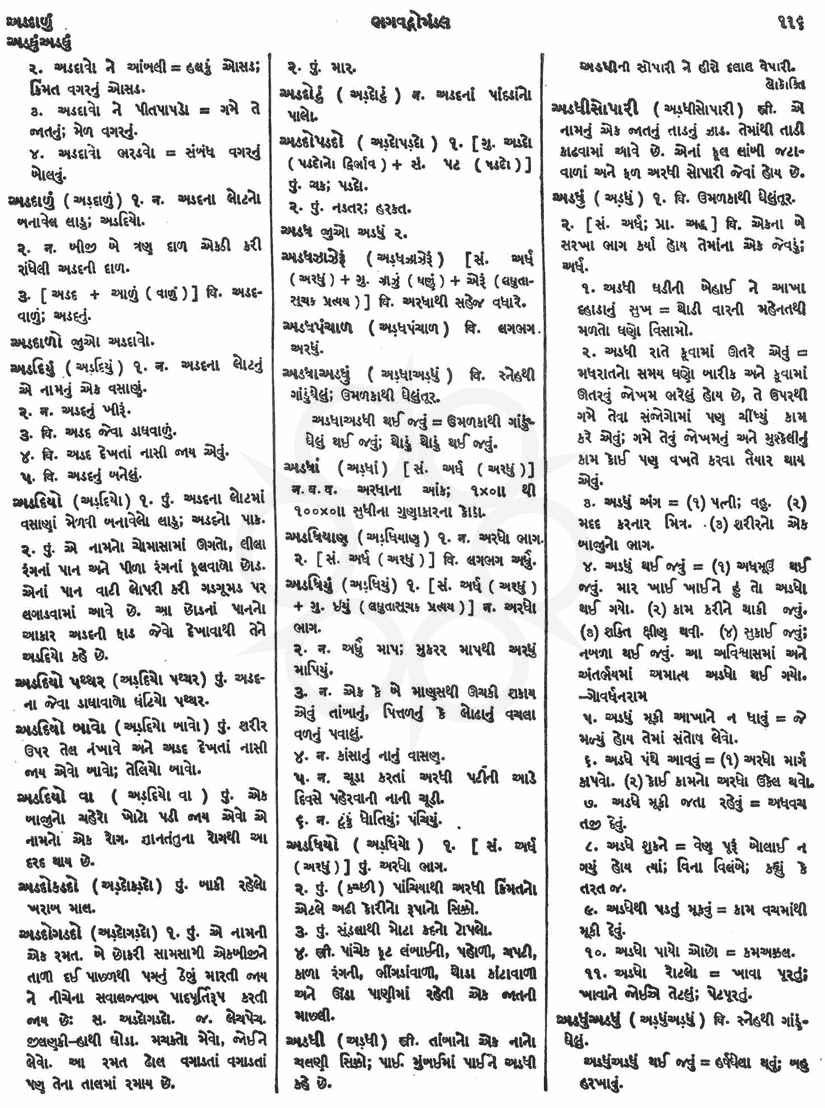 અડદાળું
અડધુંઅડધું
ભગવદ્ગોમંડલ
૧૧૬
૨. અડદાવો ને આંબલી = હલકું ઓસડ;
કિંમત વગરનું ઓસડ.
૩. અડદાવો ને પીતપાપડો = ગમે તે
જાતનું; મેળ વગરનું.
૪. અડદાવો ભરડવો = સંબંધ વગરનું
બોલવું.
અડદાળું (અડ્દાળું) ૧. ન. અડદના લોટનો
બનાવેલ લાડુ; અડદિયો.
૨. ન. બીજી બે ત્રણ દાળ એકઠી કરી
રાંધેલી અડદની દાળ.
૩. [ અડદ + આળું ( વાળું ) ] વિ. અડદ-
વાળું; અડદનું.
અડદાળો જુઓ અડદાવો.
અડદિયું (અડ્દિયું) ૧. ન. અડદના લોટનું
એ નામનું એક વસાણું.
૨. ન. અડદનું ખીરૂં.
૩. વિ. અડદ જેવા ડાઘવાળું.
૪. વિ. અડદ દેખતાં નાસી જાય એવું.
૫. વિ. અડદનું બનેલું.
અડદિયો (અડ્દિયો) ૧. પું. અડદના લોટમાં
વસાણાં મેળવી બનાવેલો લાડુ; અડદનો પાક.
૨. પું. એ નામનો ચોમાસામાં ઊગતો, લીલા
રંગનાં પાન અને પીળા રંગનાં ફૂલવાળો છોડ.
એનાં પાન વાટી લોપરી કરી ગડગૂમડ પર
લગાડવામાં આવે છે. આ છોડનાં પાનનો
આકાર અડદની ફાડ જેવો દેખાવાથી તેને
અડદિયો કહે છે.
અડદિયો પથ્થર (અડ્દિયો પથ્થર) પું. અડદ-
ના જેવા ડાઘાવાળો ઘંટિયો પથ્થર.
અડદિયો બાવો (અડ્દિયો બાવો) પું. શરીર
ઉપર તેલ નંખાવે અને અડદ દેખતાં નાસી
જાય એવો બાવો; તેલિયો બાવો.
અડદિયો વા ( અડ્દિયો વા ) પું. એક
બાજુનો ચહેરો ખોટો પડી જાય એવો એ
નામનો એક રોગ. જ્ઞાનતંતુના રોગથી આ
દરદ થાય છે.
અડદોકડદો (અડ્દોકડ્દો) પું. બાકી રહેલો
ખરાબ માલ.
અડદોગડદો (અડ્દોગડ્દો) ૧. પું. એ નામની
એક રમત. બે છોકરી સામસામી એકબીજીને
તાળી દઈ પાછળથી પગનું ઠેબું મારતી જાય
ને નીચેના સવાલજવાબ પાદપૂર્તિરૂપ કરતી
જાય છેઃ સ. અડદોગડદો. જ. લેચપેચ.
જીલણકી-હાથી ઘોડા. મચકતો મેવો, જોઈને
લેવો. આ રમત ઢોલ વગાડતાં વગાડતાં
પણ તેના તાલમાં રમાય છે.
૨. પું. માર.
અડદોટું ( અડ્દોટું ) ન. અડદનાં પાંદડાંનો
પાલો.
અડદોપડદો (અડ્દોપડ્દો) ૧. [ગુ. અડદો
( પડદોનો દ્વિર્ભાવ ) + સં. પટ ( પડદો )]
પું. ચક; પડદો.
૨. પું. નડતર; હરકત.
અડધ જુઓ અડધું ૨.
અડધઝાઝેરૂં (અડધઝાઝેરૂં) [સં. અર્ધ
( અરધું ) + ગુ. ઝાઝું (ઘણું) + એરૂં (લઘુતા-
સૂચક પ્રત્યય )] વિ. અરધાથી સહેજ વધારે.
અડધપંચાળ (અડધપંચાળ) વિ. લગભગ
અરધું.
અડધાઅડધું (અડ્ધાઅડ્ધું) વિ. સ્નેહથી
ગાંડુંઘેલું; ઉમળકાથી ઘેલુંતૂર.
અડધાઅડધી થઈ જવું = ઉમળકાથી ગાંડું-
ઘેલું થઈ જવું; થોડું થોડું થઈ જવું.
અડધાં (અડ્ધાં) [સં. અર્ધ ( અરધું )]
ન. બ. વ. અરધાના આંક; ૧×૦॥ થી
૧૦૦×૦॥ સુધીના ગુણાકારના કોઠા.
અડધિયાણ (અડ્ધિયાણ) ૧. ન. અરધો ભાગ.
૨. [સં. અર્ધ (અરધું)] વિ. લગભગ અર્ધું.
અડધિયું (અડ્ધિયું) ૧. [સં. અર્ધ (અરધું )
+ ગુ. ઈયું (લઘુતાસૂચક પ્રત્યય)] ન. અરધો
ભાગ.
૨. ન. અર્ધું માપ; મુકરર માપથી અરધું
માપિયું.
૩. ન. એક કે બે માણસથી ઊચકી શકાય
એવું તાંબાનું, પિત્તળનું કે લોઢાનું વચલા
વળનું પવાલું.
૪. ન. કાંસાનું નાનું વાસણ.
૫. ન. ચૂડા કરતાં અરધી પટીની આઠે
દિવસે પહેરવાની નાની ચૂડી.
૬. ન. ટૂંકું ધોતિયું; પંચિયું.
અડધિયો (અડ્ધિયો) ૧. [ સં. અર્ધ
(અરધું)] પું. અરધો ભાગ.
૨. પું. (કચ્છી) પાંચિયાથી અરધી કિંમતનો
એટલે અઢી કોરીનો રૂપાનો સિક્કો.
૩. પું. સૂંડલાથી મોટા કદનો ટોપલો.
૪. સ્ત્રી. પાંચેક ફૂટ લંબાઈની, પહોળી, ચપટી,
કાળા રંગની, ભીંગડાંવાળી, થોડા કાંટાવાળી
અને ઊંડા પાણીમાં રહેતી એક જાતની
માછલી.
અડધી (અડ્ધી) સ્ત્રી. તાંબાનો એક નાનો
ચલણી સિક્કો; પાઈ. મુંબઈમાં પાઈને અડધી
કહે છે.
અડધીની સોપારી ને હીરો દલાલ વેપારી.
લોકોક્તિ
અડધીસોપારી (અડ્ધીસોપારી) સ્ત્રી. એ
નામનું એક જાતનું તાડનું ઝાડ. તેમાંથી તાડી
કાઢવામાં આવે છે. એનાં ફૂલ લાંબી જટા-
વાળાં અને ફળ અરધી સોપારી જેવાં હોય છે.
અડધું (અડ્ધું) ૧. વિ. ઉમળકાથી ઘેલુંતૂર.
૨. [સં. અર્ધ; પ્રા. અદ્ધ] વિ. એકના બે
સરખા ભાગ કર્યા હોય તેમાંના એક જેવડું;
અર્ધ.
૧. અડધી ઘડીની બેહાઈ ને આખા
દહાડાનું સુખ = થોડી વારની મહેનતથી
મળતો ઘણો વિસામો.
૨. અડધી રાતે કૂવામાં ઊતરે એવું =
મધરાતનો સમય ઘણો બારીક અને કૂવામાં
ઊતરવું જોખમ ભરેલું હોય છે, તે ઉપરથી
ગમે તેવા સંજોગોમાં પણ ચીંધ્યું કામ
કરે એવું; ગમે તેવું જોખમનું અને મુશ્કેલીનું
કામ કોઈ પણ વખતે કરવા તૈયાર થાય
એવું.
૩. અડધું અંગ = (૧) પત્ની; વહુ. (૨)
મદદ કરનાર મિત્ર. (૩) શરીરનો એક
બાજુનો ભાગ.
૪. અડધું થઈ જવું = (૧) અધમૂઉં થઈ
જવું. માર ખાઈ ખાઈને હું તો અડધો
થઈ ગયો. (૨) કામ કરીને થાકી જવું.
(૩) શક્તિ ક્ષીણ થવી. (૪) સુકાઈ જવું;
નબળા થઈ જવું. આ અવિશ્વાસમાં અને
અંતર્ભયમાં અમાત્ય અડધો થઈ ગયો.
–ગોવર્ધનરામ
૫. અડધું મૂકી આખાને ન ધાવું = જે
મળ્યું હોય તેમાં સંતોષ લેવો.
૬. અડધે પંથે આવવું = (૧) અરધો માર્ગ
કાપવો. (૨) કોઈ કામનો અરધો ઉકેલ થવો.
૭. અડધે મૂકી જતા રહેવું = અધવચ
તજી દેવું.
૮. અડધે શુકને = વેણ પૂરૂં બોલાઈ ન
ગયું હોય ત્યાં; વિના વિલંબે; કહ્યું કે
તરત જ.
૯. અડધેથી પડતું મૂકવું = કામ વચમાંથી
મૂકી દેવું.
૧૦. અડધો પાયો ઓછો = કમઅક્કલ.
૧૧. અડધો રોટલો = ખાવા પૂરતું;
ખાવાને જોઈએ તેટલું; પેટપૂરતું.
અડધુંઅડધું (અડ્ધુંઅડ્ધું) વિ. સ્નેહથી ગાંડું-
ઘેલું.
અડધુંઅડધું થઈ જવું = હર્ષઘેલા થવું; બહુ
હરખાવું.